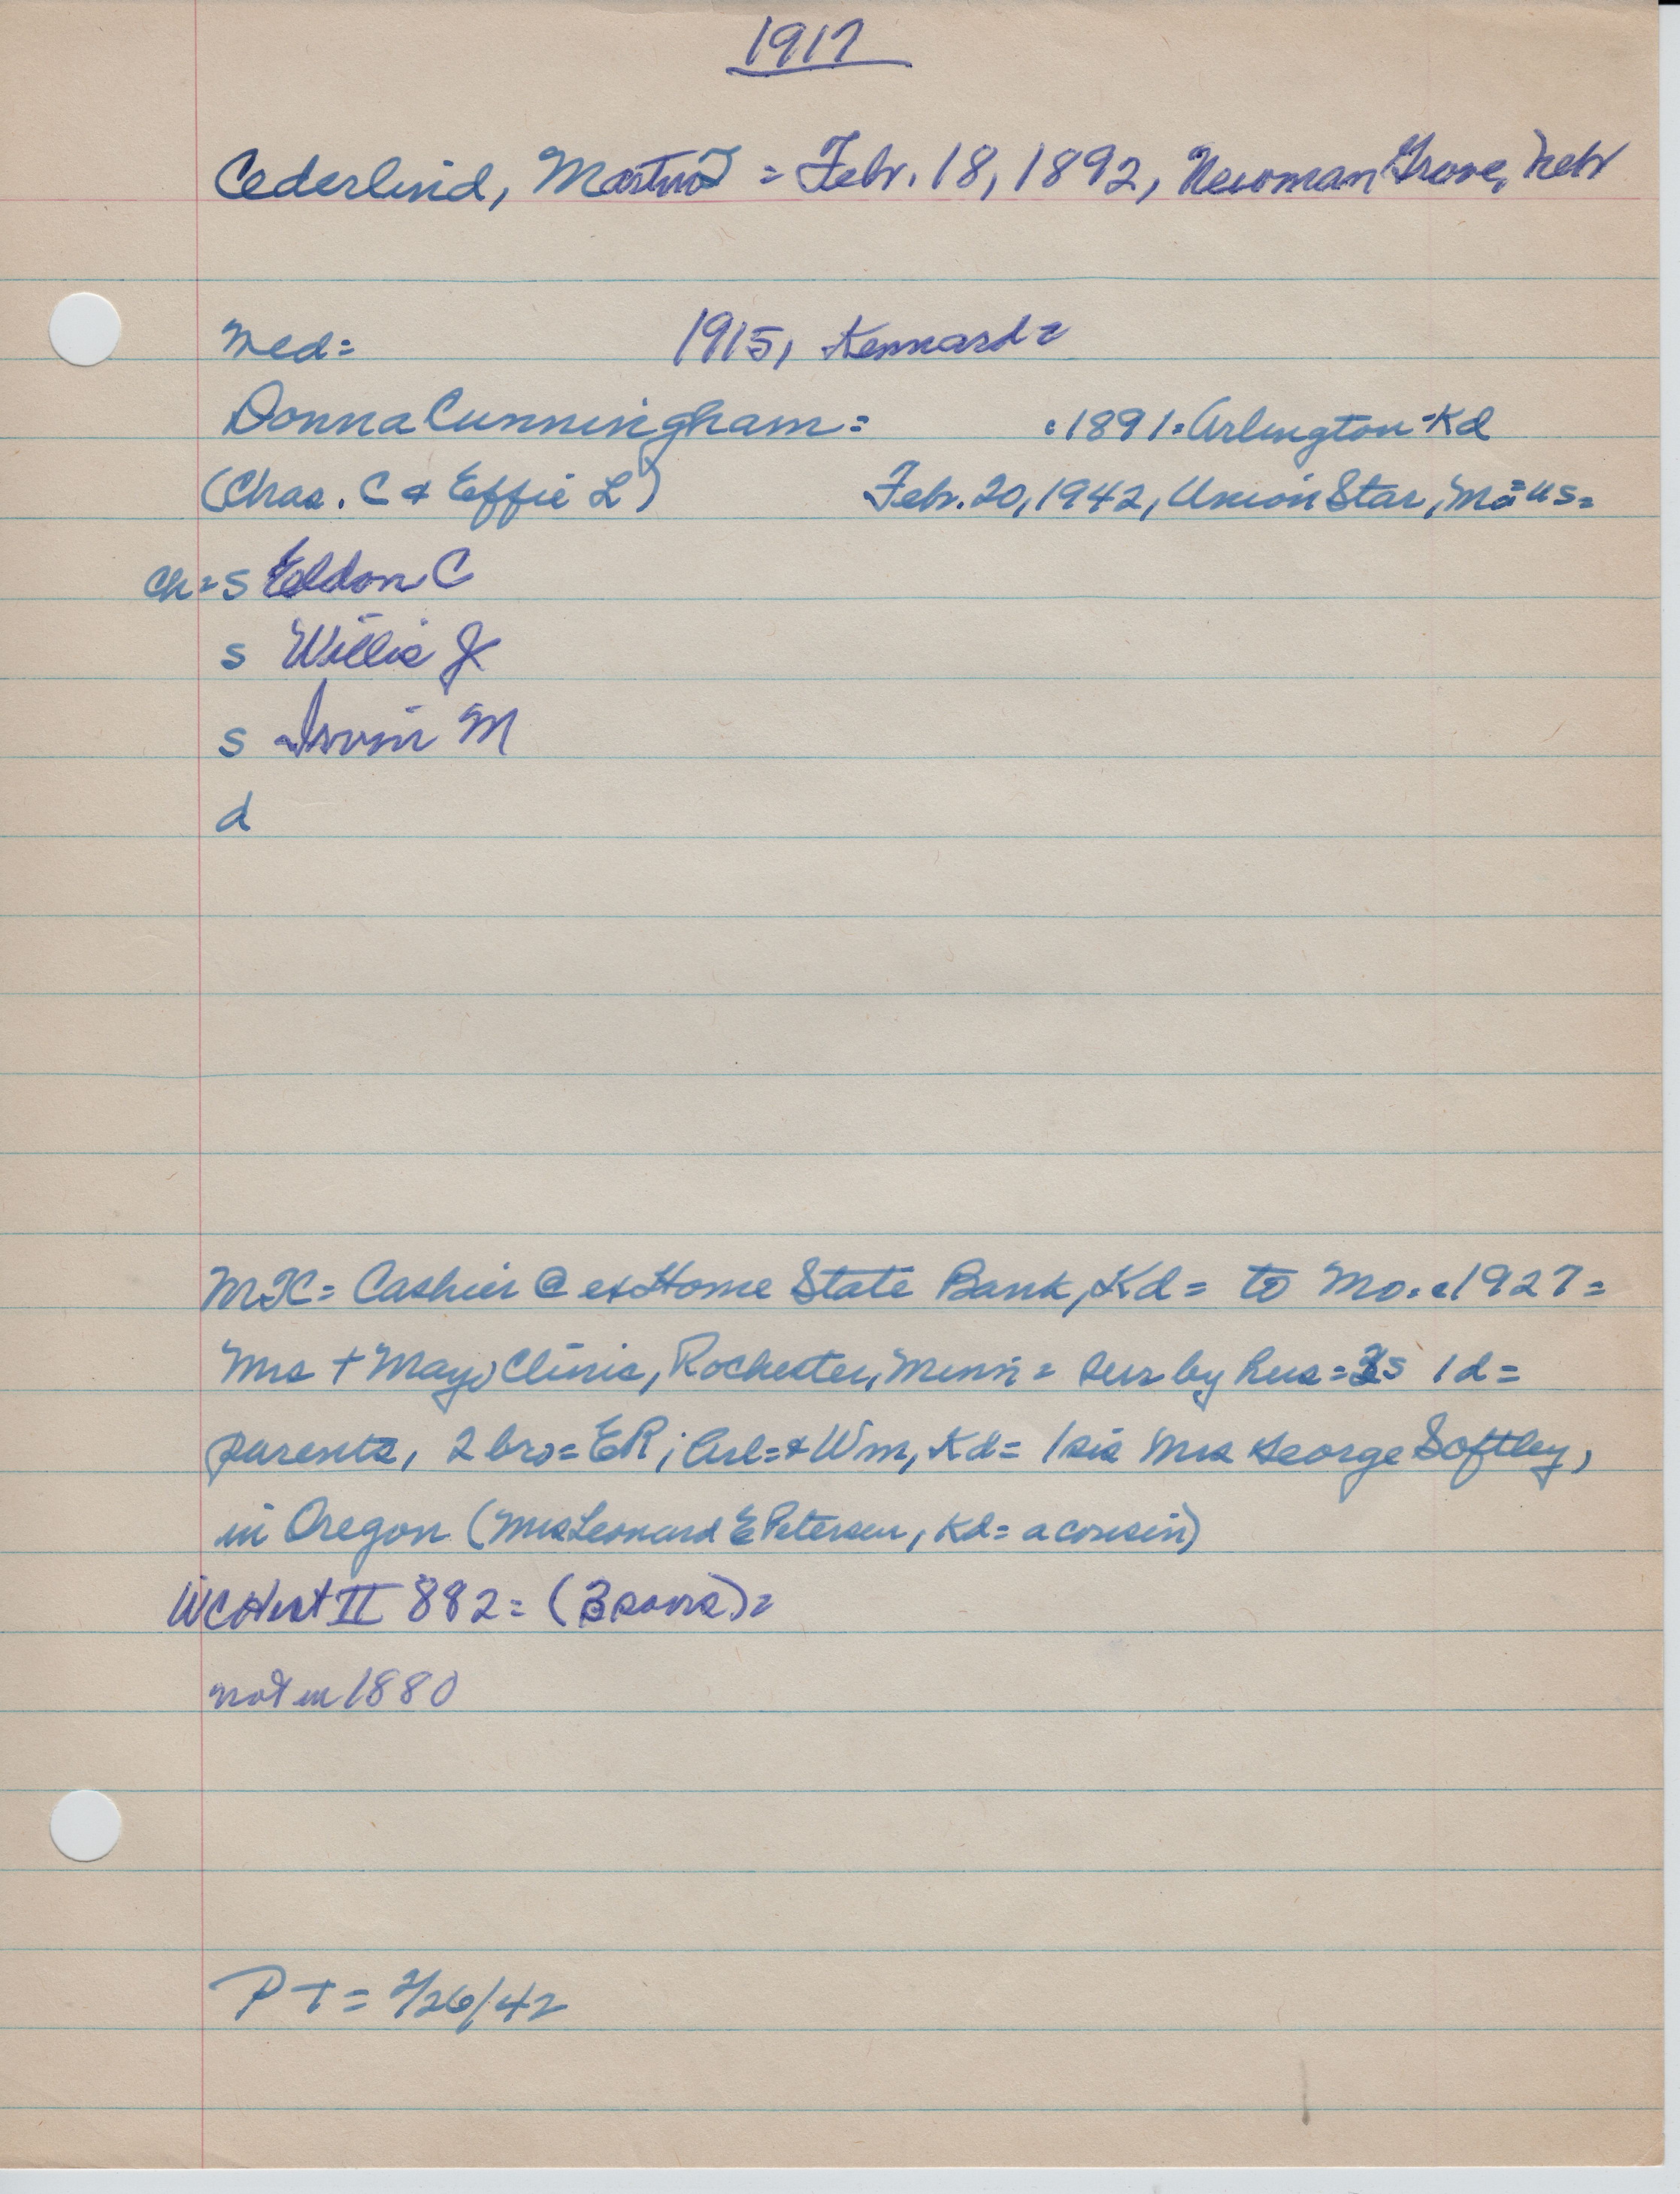 1917
Cederlind, Martin = Febr. 18, 1892, Newman Grove, Nebr
Wed= 1915, Kennard=
Donna Cunningham= c1891=Arlington-Kd
(Chas. C & Effie L) Febr. 20, 1942, Union Star, Mo=us=
Ch=s Eldon C
s Willis J
s Irvin M
d
MTC= Cashier @ ex Home State Bank, Kd= to Mo. c1927=
Mrs + Mayo Clinic, Rochester, Minn= sur by hus= 3s 1d=
parents, 2 bro= ER, Arl=& Wm, Kd= 1 sis Mrs George Softley,
in Oregon (Mrs Leonard E Petersen, Kd= a cousin)
WCHist II 882= (3 sons)=
not in 1880
PT= 2/26/42